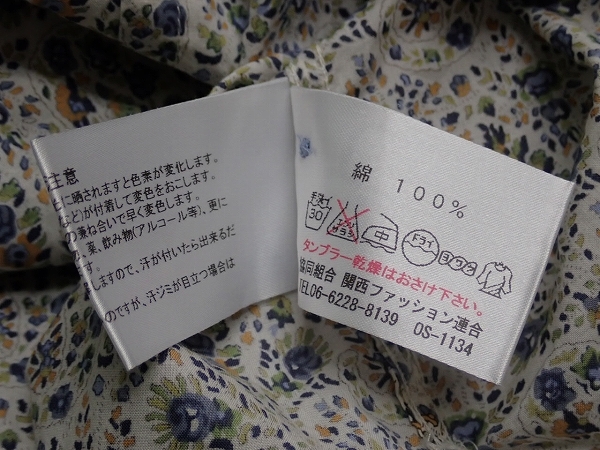 注意
に晒されますと色素が変化します。
など)が付着して変色をおこします。
の兼ね合いで早く変色します。
、薬、飲み物(アルコール等)、更に
す。
しますので、汗が付いたら出来るだ
のですが、汗ジミが目立つ場合は
綿 100%
手洗イ
30
エンソ
サラシ
中
ドライ
ヨワク
タンブラー乾燥はおさけ下さい。
協同組合 関西ファッション連合
TEL06-6228-8139 OS-1134